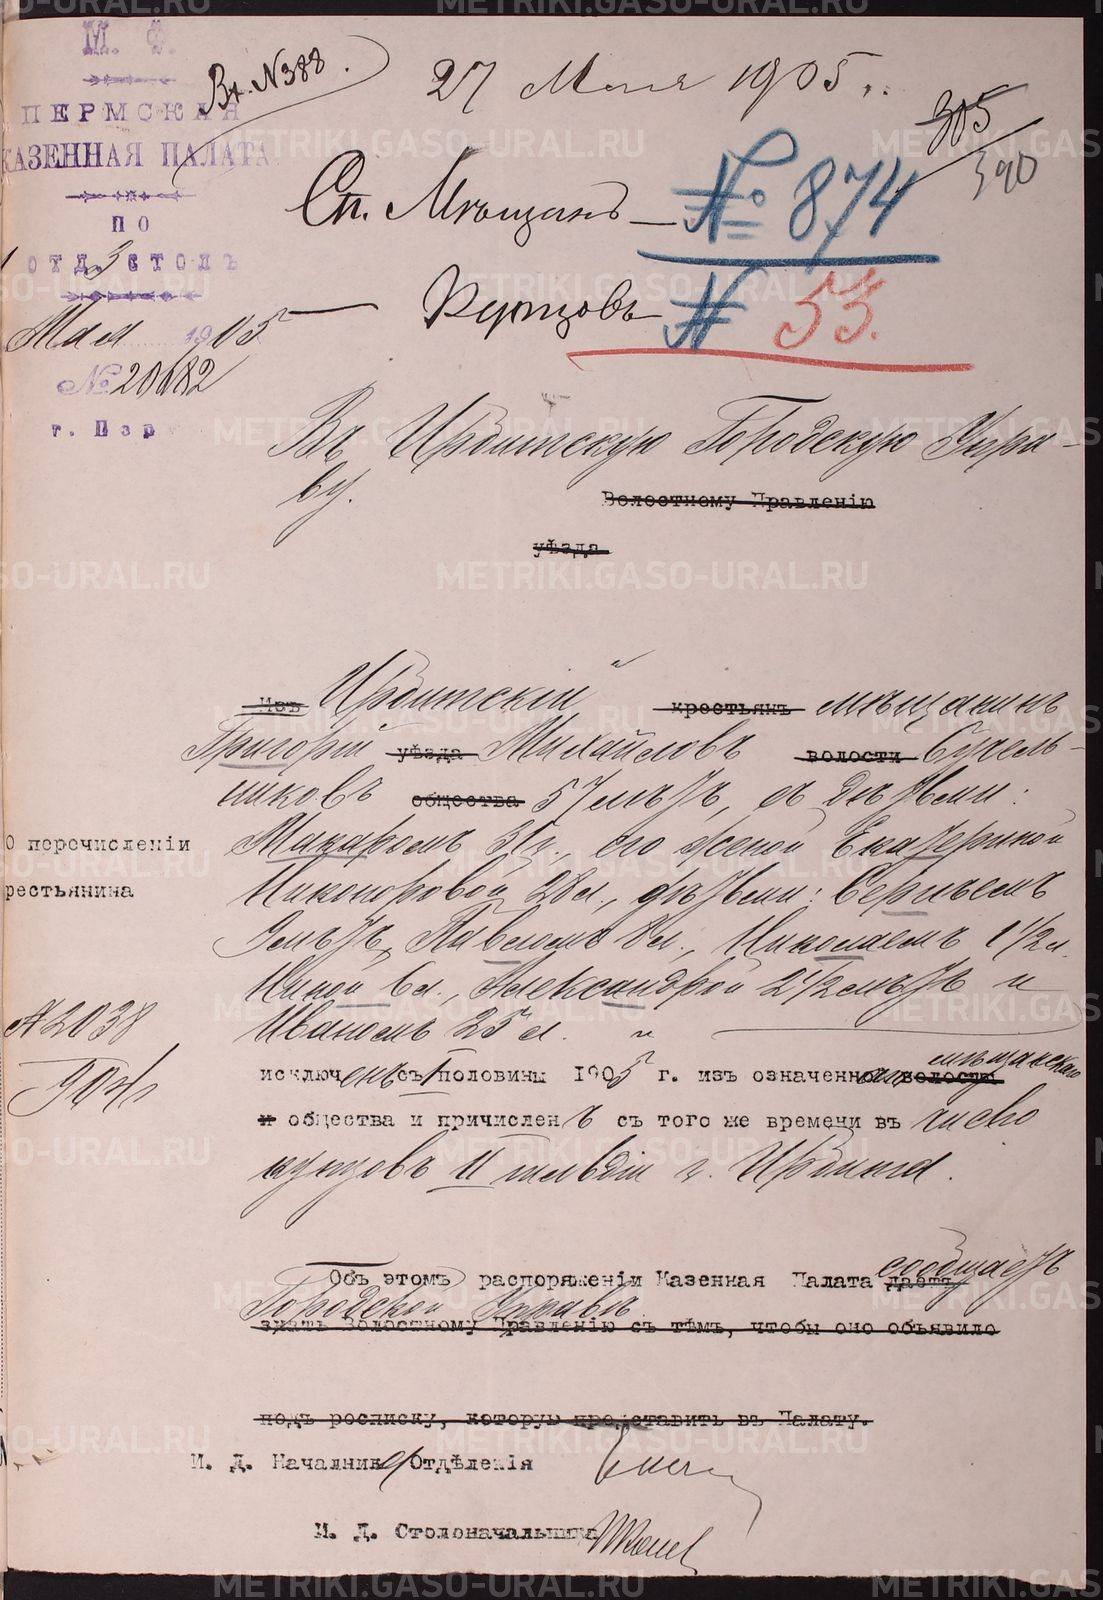 М. Ф.
ПЕРМСКАЯ
КАЗЕННАЯ ПАЛАТА
ПО
ОТД. 3 СТОЛЪ
Мая 1905
№ 20682
г. Пер
Вх. N 388.
27 Мая 1905 г.
305
390
Сп. Мѣщанъ — № 874
— Купцовъ № 53.
Въ Ирбитскую Городскую Упра-
ву.
Волостному Правленію
уѣзда
Изъ Ирбитскій крестьянъ мѣщанинъ
Григорій уѣзда Михайловъ волости
никовъ общества 57 лѣтъ, съ дѣтьми:
Макаромъ 31 г., его женой Екатериной
Никоноровой 28 л., дѣтьми: Сергѣемъ
9 лѣтъ, Павломъ 8 л., Николаемъ 1 1/2 л.
Ниной 6 л., Александрой 2 1/2 лѣтъ и
Иваномъ 25 л.
О перечисленіи
рестьянина
А 2038
904 г.
исключенъ съ I половины 1905 г. изъ означенна волости мѣщанскаго
и общества и причисленъ съ того же времени въ число
купцовъ II гильдіи г. Ирбита.
Объ этомъ распоряженіи Казенная Палата даетъ сообщаетъ
Городской Управѣ.
знать Волостному Правленію съ тѣмъ, чтобы оно объявило
подъ росписку, которую представить въ Палату.
И. Д. Началника Отдѣленія
И. Д. Столоначальника
METRIKI.GASO-URAL.RU